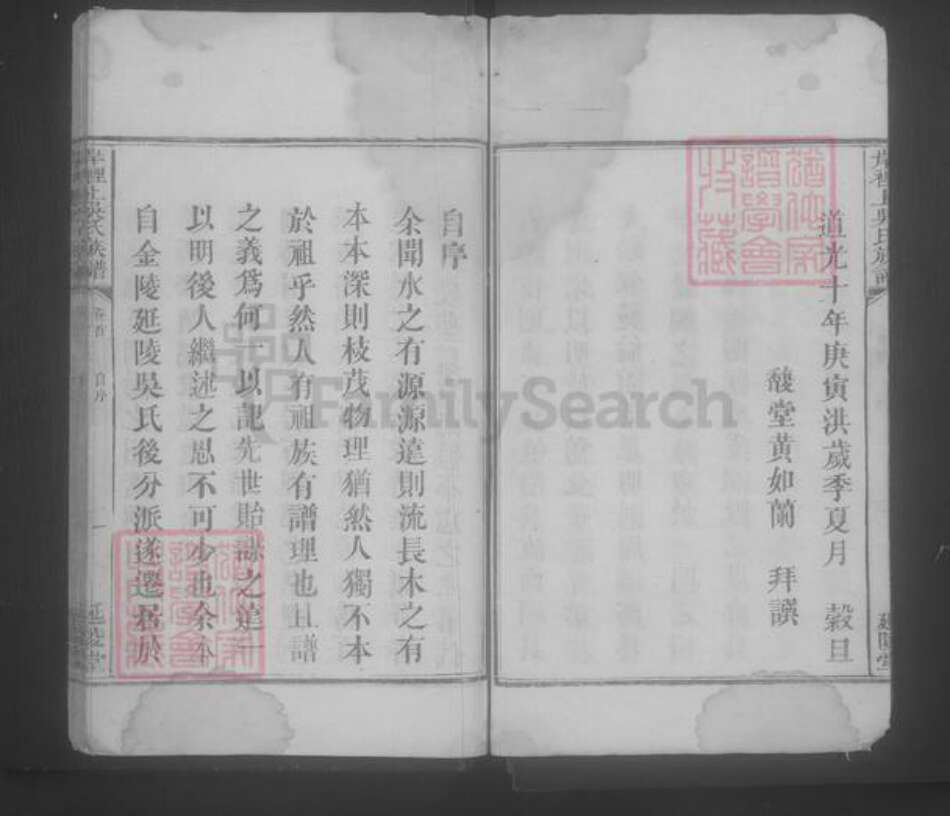 道光十年庚寅洪歲季夏月　穀旦
酸堂黄如蘭　拜譔
自序
余聞水之有源源遠則流長木之有
本本深則枝茂物理猶然人獨不本
於祖乎然人有祖族有譜理也且譜
之義爲何一以記先世貽謀之遠一
以明後人繼述之思不可少也余本
自金陵延陵吳氏後分派遂遷居於
吳氏族譜
卷首
自序
一
延陵堂
吳氏族譜
延陵堂
FamilySearch
譜學會
收藏